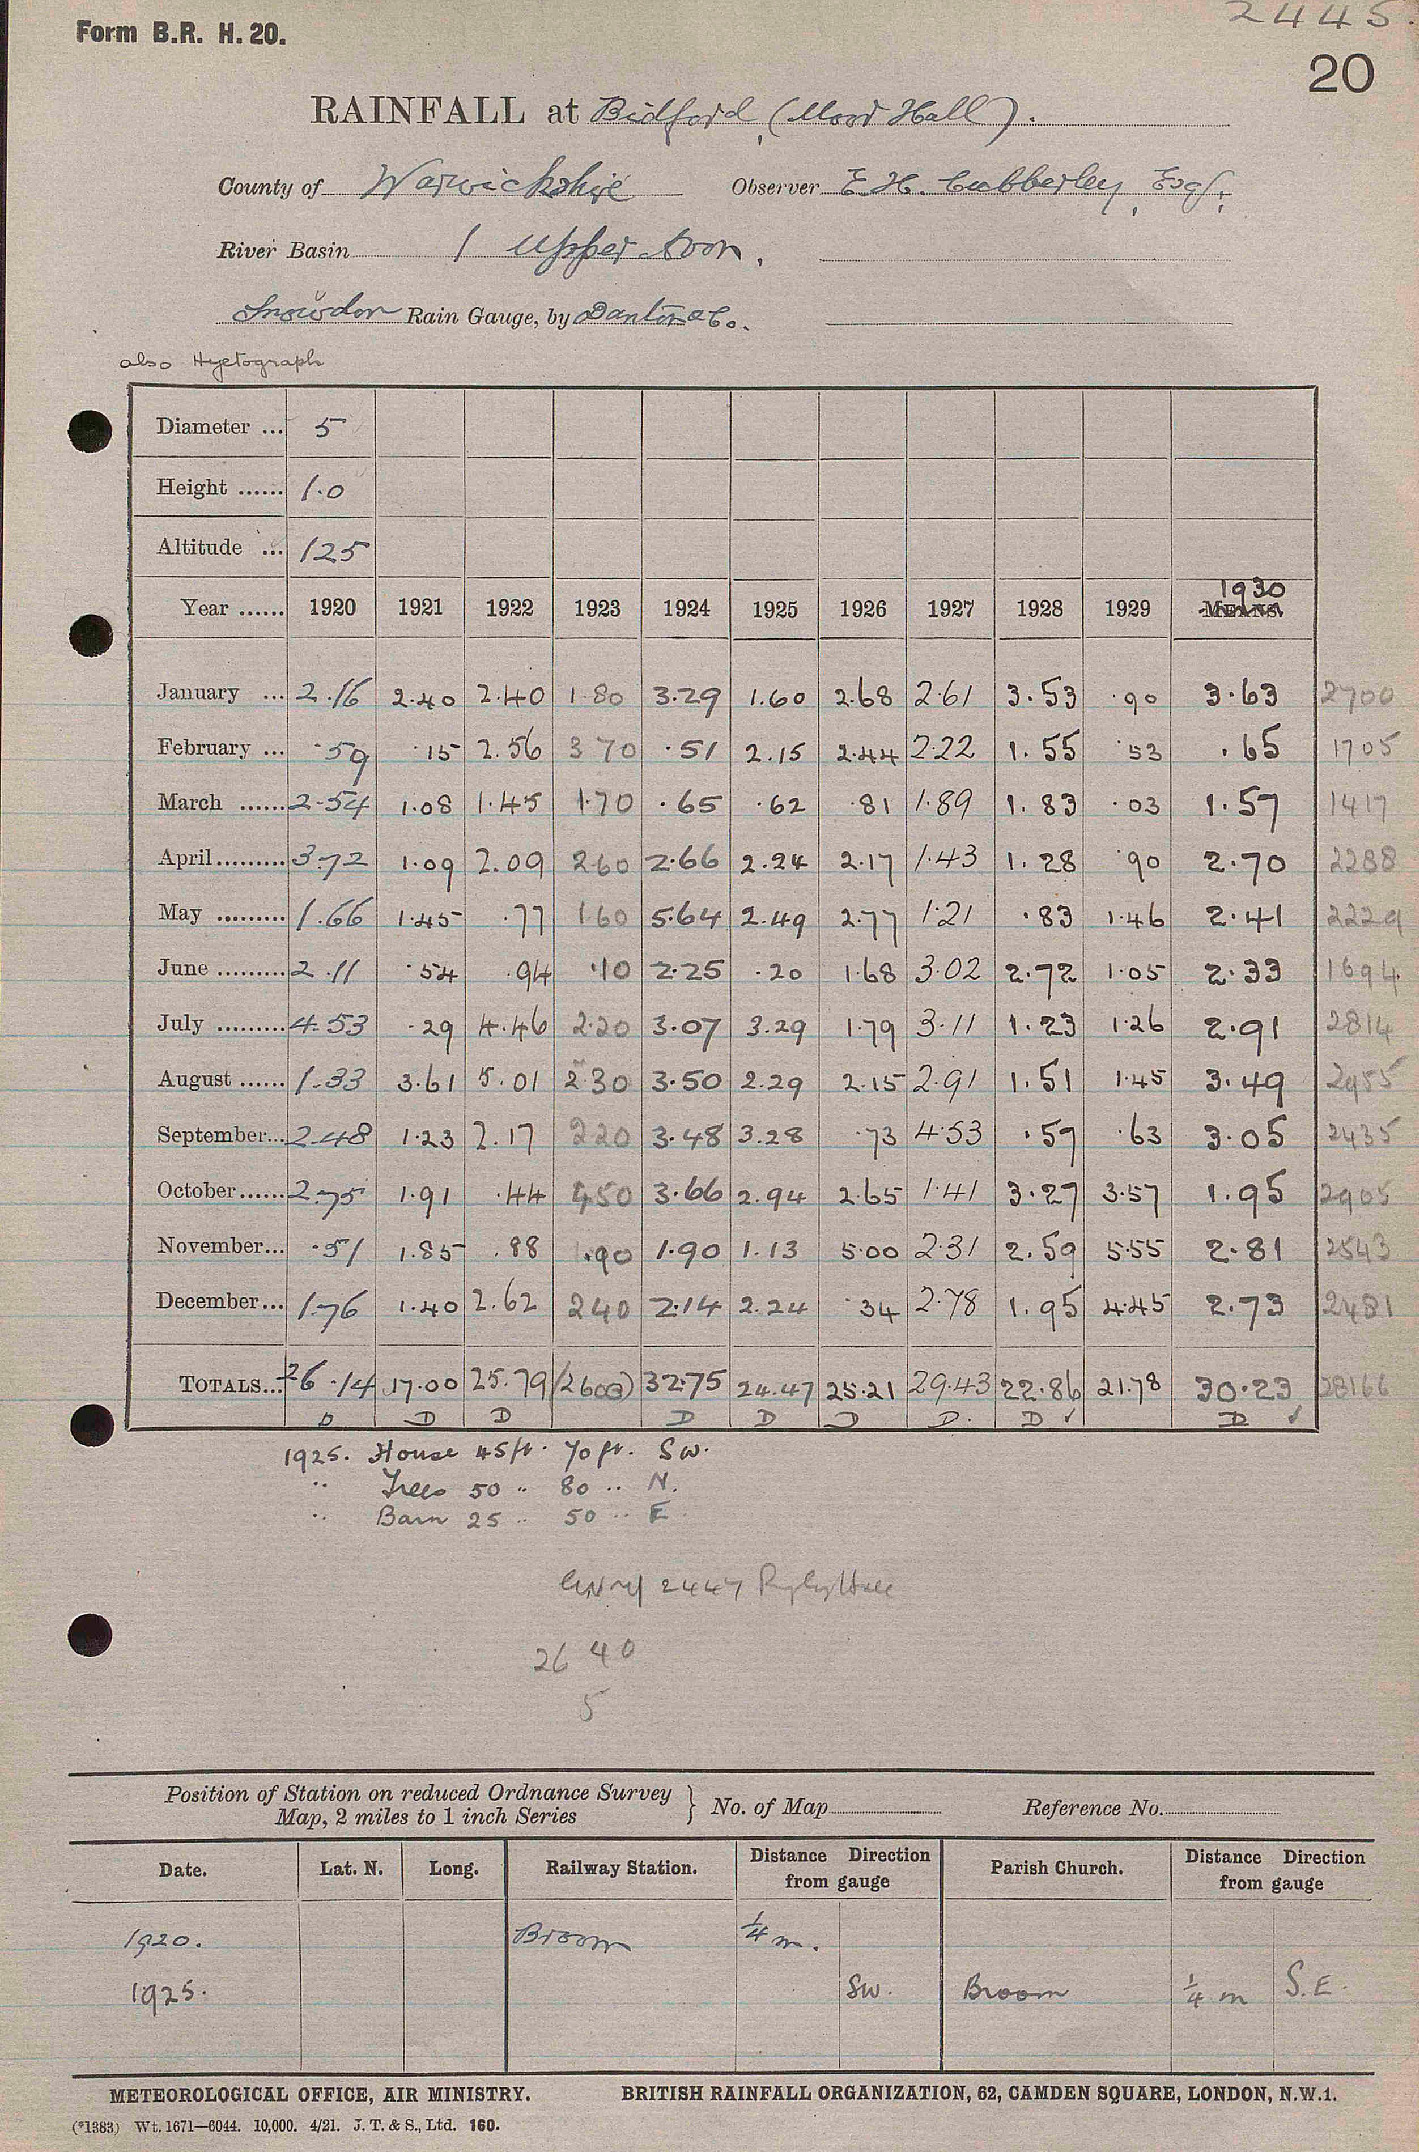 2445.
Form B.R. H. 20.
20
RAINFALL at Bidford, (Moor Hall).
County of Warwickshire Observer E. H. Cubberley, Esq.,
River Basin / Upper Avon.
Snowdon Rain Gauge, by Danton & Co.
also Hyetograph
Diameter ... 5
Height ...... 1.0
Altitude ... 125
1930
Year ...... 1920 1921 1922 1923 1924 1925 1926 1927 1928 1929 MEANS.
January ... 2.16 2.40 2.40 1.80 3.29 1.60 2.68 2.61 3.53 .90 3.63 2700
February ... .59 .15 2.56 3 70 .51 2.15 2.44 2.22 1.55 .53 .65 1705
March ...... 2.54 1.08 1.45 1.70 .65 .62 .81 1.89 1.83 .03 1.57 1417
April ......... 3.72 1.09 2.09 2 60 2.66 2.24 2.17 1.43 1.28 .90 2.70 2288
May ......... 1.66 1.45 .77 1 60 5.64 2.49 2.77 1.21 .83 1.46 2.41 2229
June ......... 2.11 .54 .94 .10 2.25 .20 1.68 3.02 2.72 1.05 2.33 1694
July ......... 4.53 .29 4.46 2.20 3.07 3.29 1.79 3.11 1.23 1.26 2.91 2814
August ...... 1.33 3.61 5.01 2 30 3.50 2.29 2.15 2.91 1.51 1.45 3.49 2955
September... 2.48 1.23 2.17 2 20 3.48 3.28 .73 4.53 .59 .63 3.05 2435
October...... 2.75 1.91 .44 4 50 3.66 2.94 2.65 1.41 3.27 3.57 1.95 2905
November... .51 1.85 .88 1.90 1.90 1.13 5.00 2.31 2.59 5.55 2.81 2543
December... 1.76 1.40 2.62 2 40 2.14 2.24 .34 2.78 1.95 4.45 2.73 2481
TOTALS... 26.14 17.00 25.79 (2600) 32.75 24.47 25.21 29.43 22.86 21.78 30.23 28166
D D D D D D D. D ✓ D ✓
1925. House 45 ft. 70 ft. SW.
" Trees 50 " 80 " N.
" Barn 25 " 50 " E.
2447
26 40
5
Position of Station on reduced Ordnance Survey
Map, 2 miles to 1 inch Series } No. of Map Reference No.
Date. Lat. N. Long. Railway Station. Distance Direction from gauge Parish Church. Distance Direction from gauge
1920. Broom ¼ m.
1925. SW. Broom ¼ m S.E.
METEOROLOGICAL OFFICE, AIR MINISTRY. BRITISH RAINFALL ORGANIZATION, 62, CAMDEN SQUARE, LONDON, N.W.1.
(*1383) Wt. 1671—6044. 10,000. 4/21. J. T. & S., Ltd. 160.